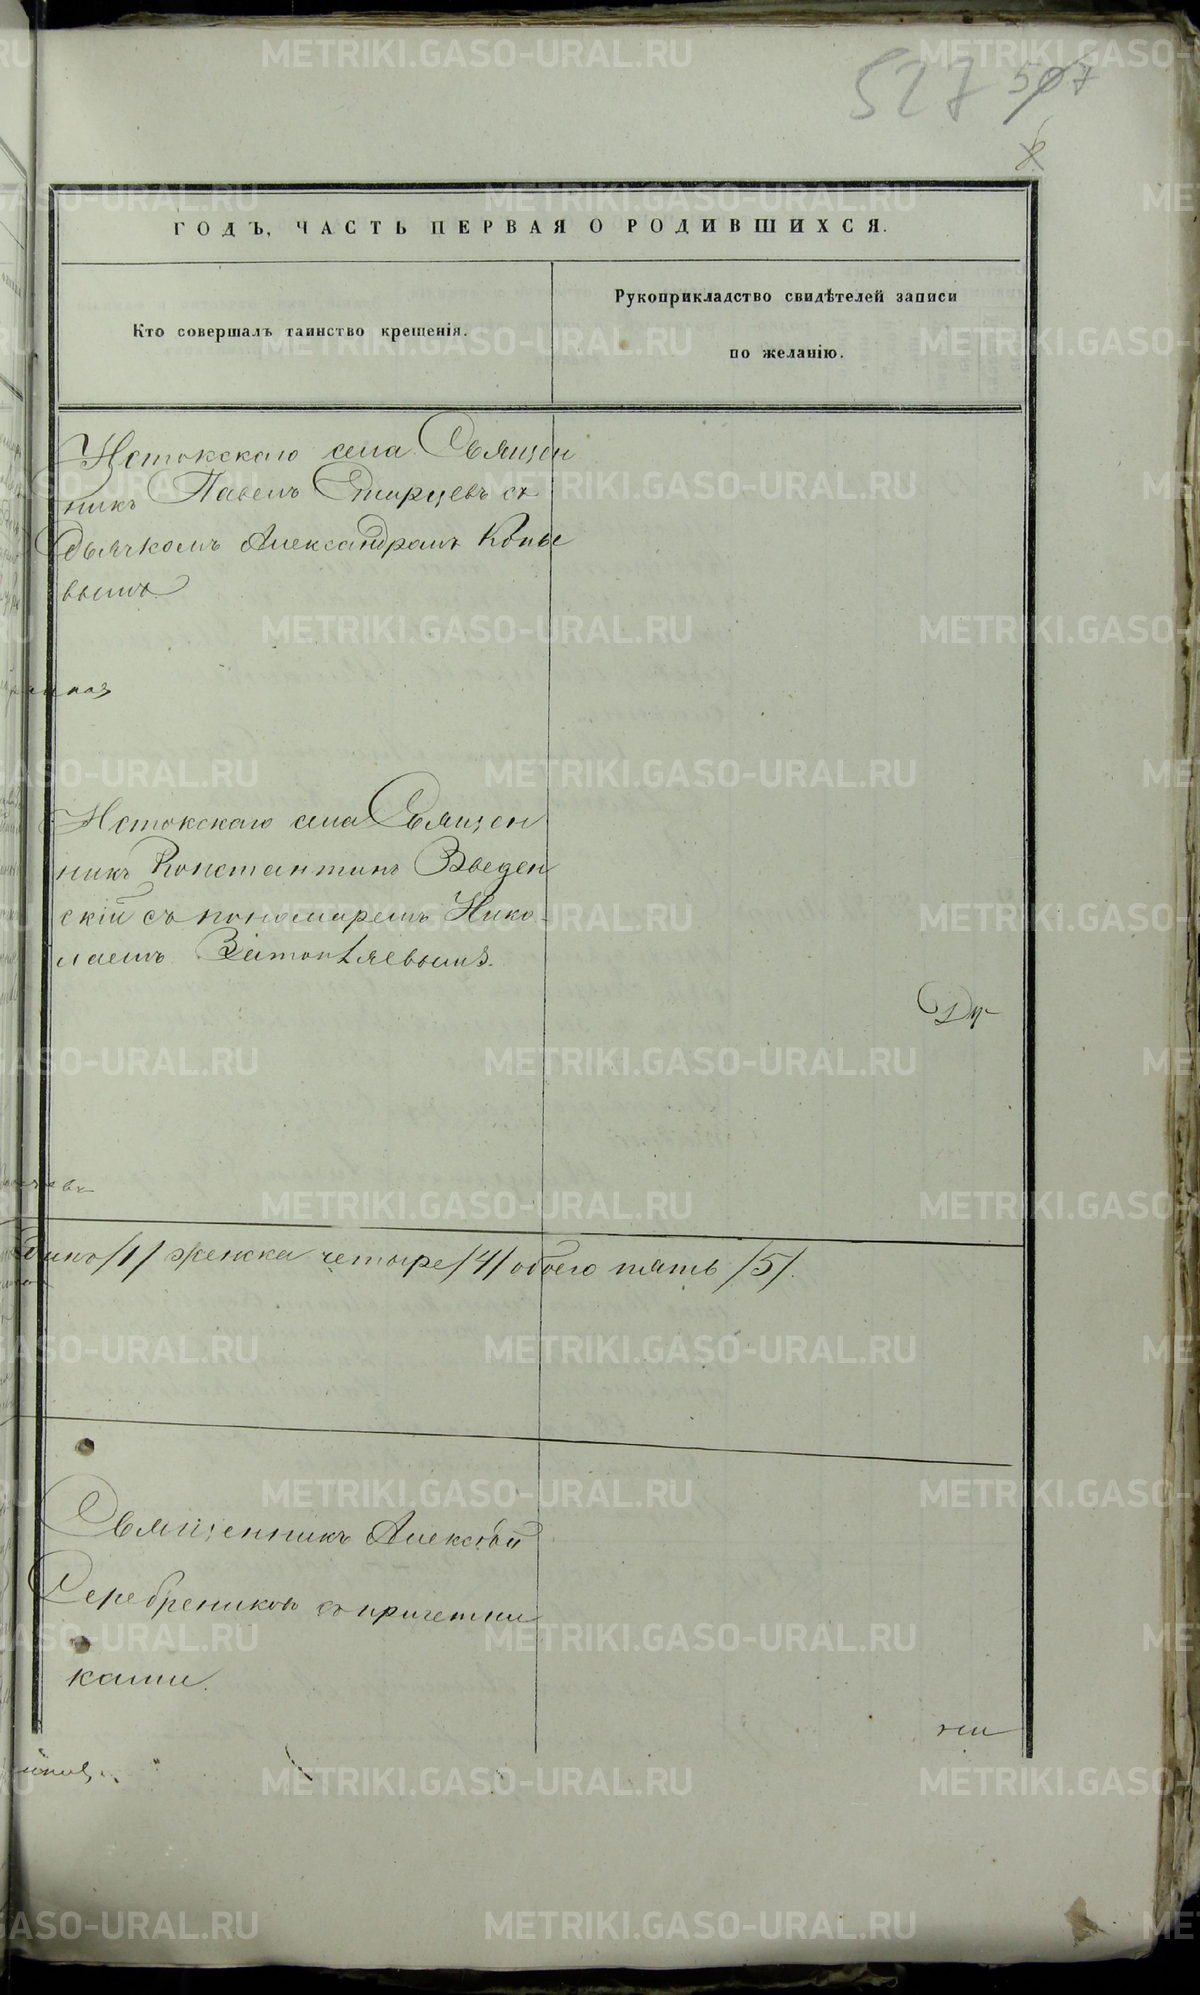 527 507
ГОДЪ, ЧАСТЬ ПЕРВАЯ О РОДИВШИХСЯ.
Кто совершалъ таинство крещенія.
Рукоприкладство свидѣтелей записи
по желанію.
Истокскаго села Священ
никъ Павелъ Старцевъ съ
дьячкомъ Александромъ Копье
вымъ
Истокскаго села Священ
никъ Константинъ Введен
скій съ пономаремъ Нико-
лаемъ
/1/ женска четыре /4/ обоего пять /5/.
Священникъ Алексѣй
Серебрениковъ съ причетни
ками.
METRIKI.GASO-URAL.RU